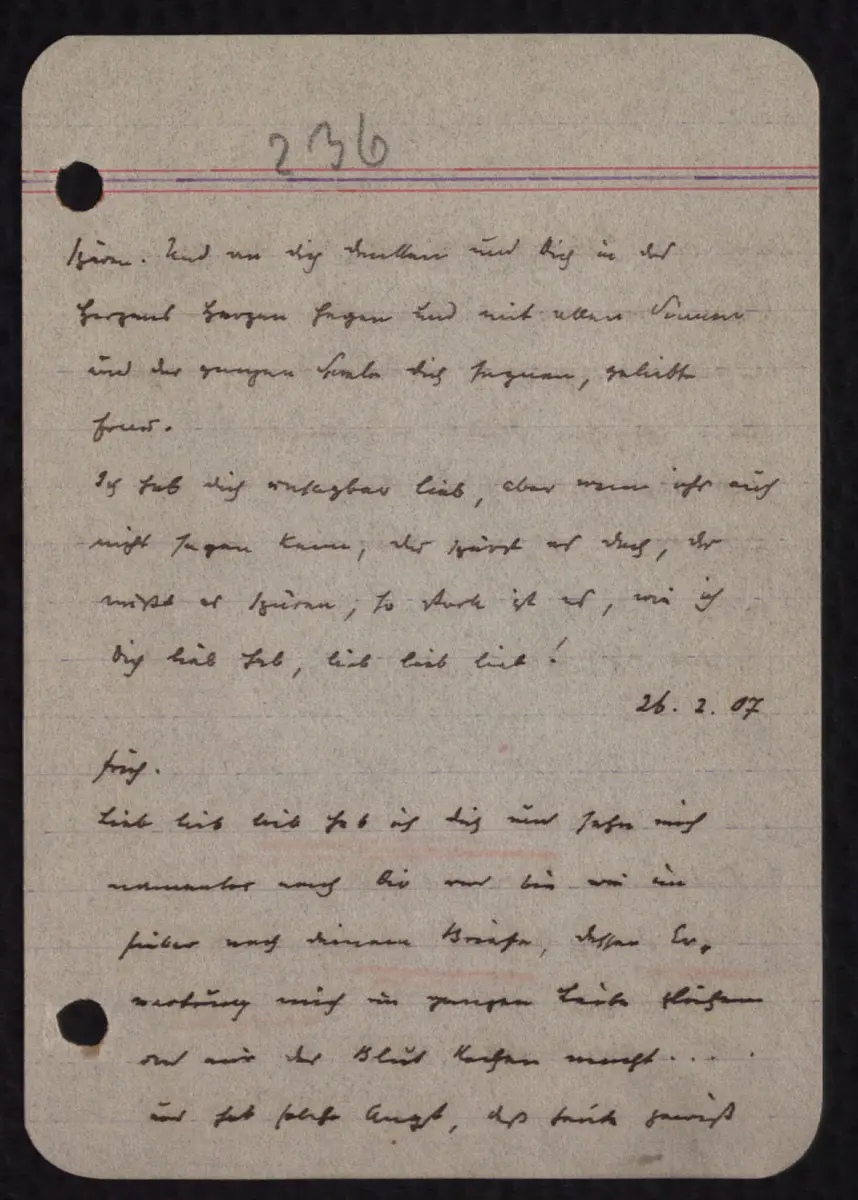 236
spüren. Und an dich denken und Dich in des
Herzens Herzen hegen und mit allen Sinnen
und der ganzen Seele dich segnen, geliebte
Frau.
Ich hab dich unsagbar lieb, aber wenn ichs auch
nicht sagen kann, du spürst es doch, du
mußt es spüren, so stark ist es, wie ich
Dich lieb hab, lieb lieb lieb!
26. 2. 07
Früh.
Lieb lieb lieb hab ich dich und sehn mich
namenlos nach Dir und bin wie im
Fieber nach deinem Briefe, dessen Er-
wartung mich im ganzen Leibe
und mir das Blut kochen macht....
und hab solche Angst, daß heute gewiß